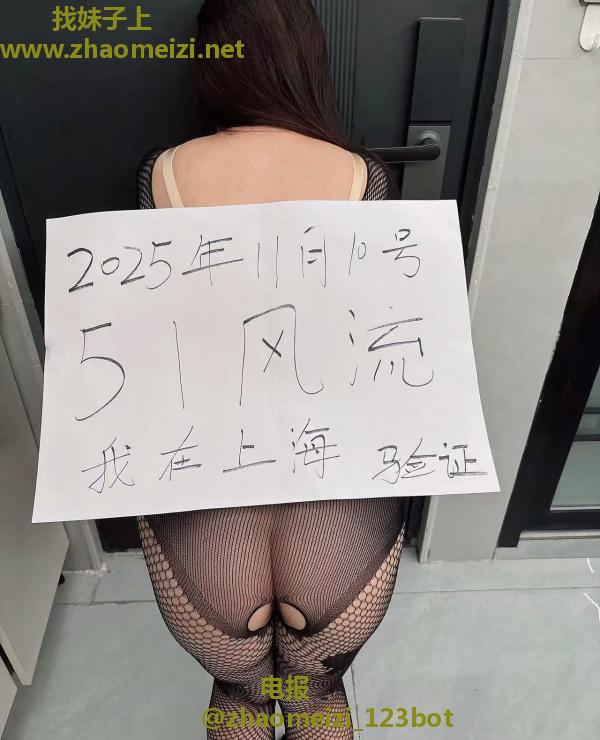 找妹子上
www.zhaomeizi.net
2025年11月10号
51风流
我在上海 验证
电报
@zhaomeizi_123bot